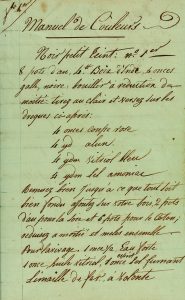 Manuel de Couleurs
Noir petit teint: N.º 1er
8 pots d'eau, 4 Bois d'Inde, 4 onces
galle, noire: bouillir à réduction de
moitié: tirez au clair et versez sur les
drogues ci-après:
4 onces couperose
4 alun
4 vitriol bleu
4 sel amoniac
Remuez bien jusqu'à ce que tout soit
bien fondu ajoutez sur votre bois 2 pots
d'eau pour le bois et 6 pots pour le
réduisez à moitié et mêlez ensemble
Pour 1 once Eau forte
1 once huile vitriol, 1 once
Limaille de fer, à volonté